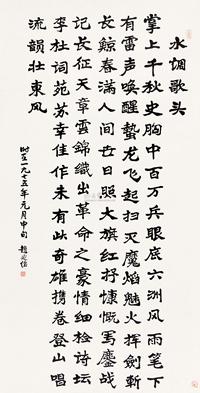 水调歌头
掌上千秋史胸中百万兵眼底六洲风雨笔下
有雷声唤醒蛰龙飞起扫灭魔焰魅火挥剑斩
长鲸春满人间世日照大旗红抒慷慨写鏖战
记长征天章云锦织出革命之豪情细检诗坛
李杜词苑苏辛佳作未有此奇雄携卷登山唱
流韵壮东风
时在一九七五年元月中旬 赵